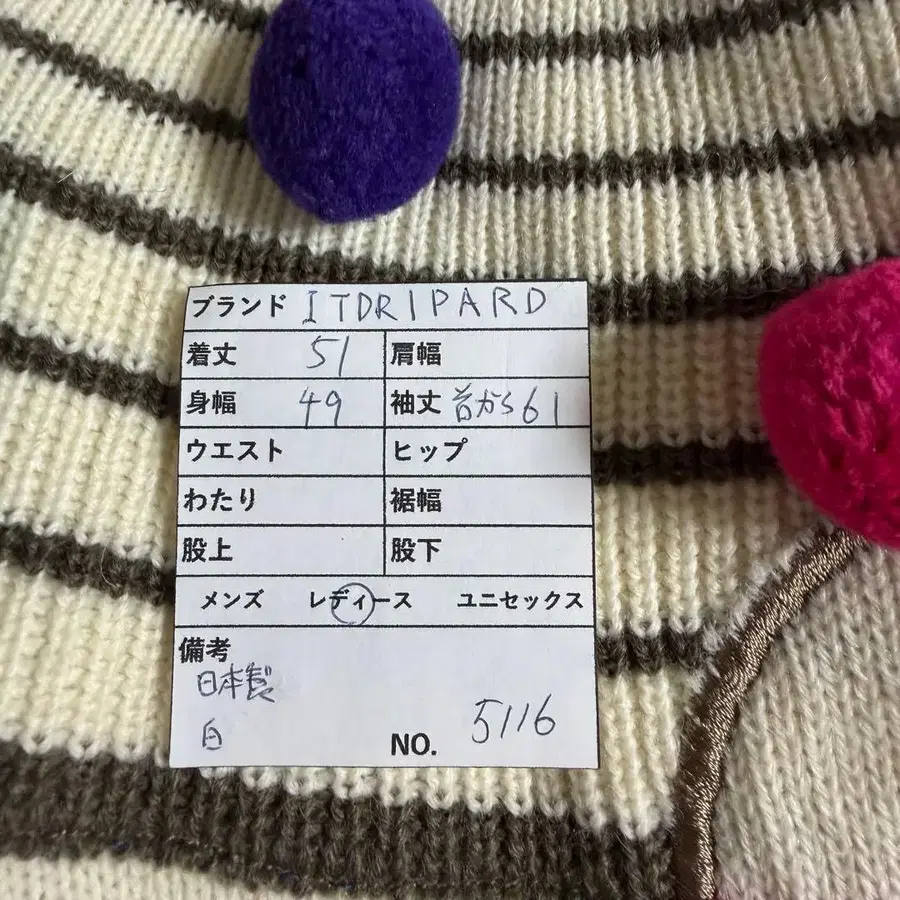 ブランド ITDRIPARD
着丈 51 肩幅
身幅 49 袖丈 首から61
ウエスト ヒップ
わたり 裾幅
股上 股下
メンズ レディース ユニセックス
備考
日本製
白 NO. 5116